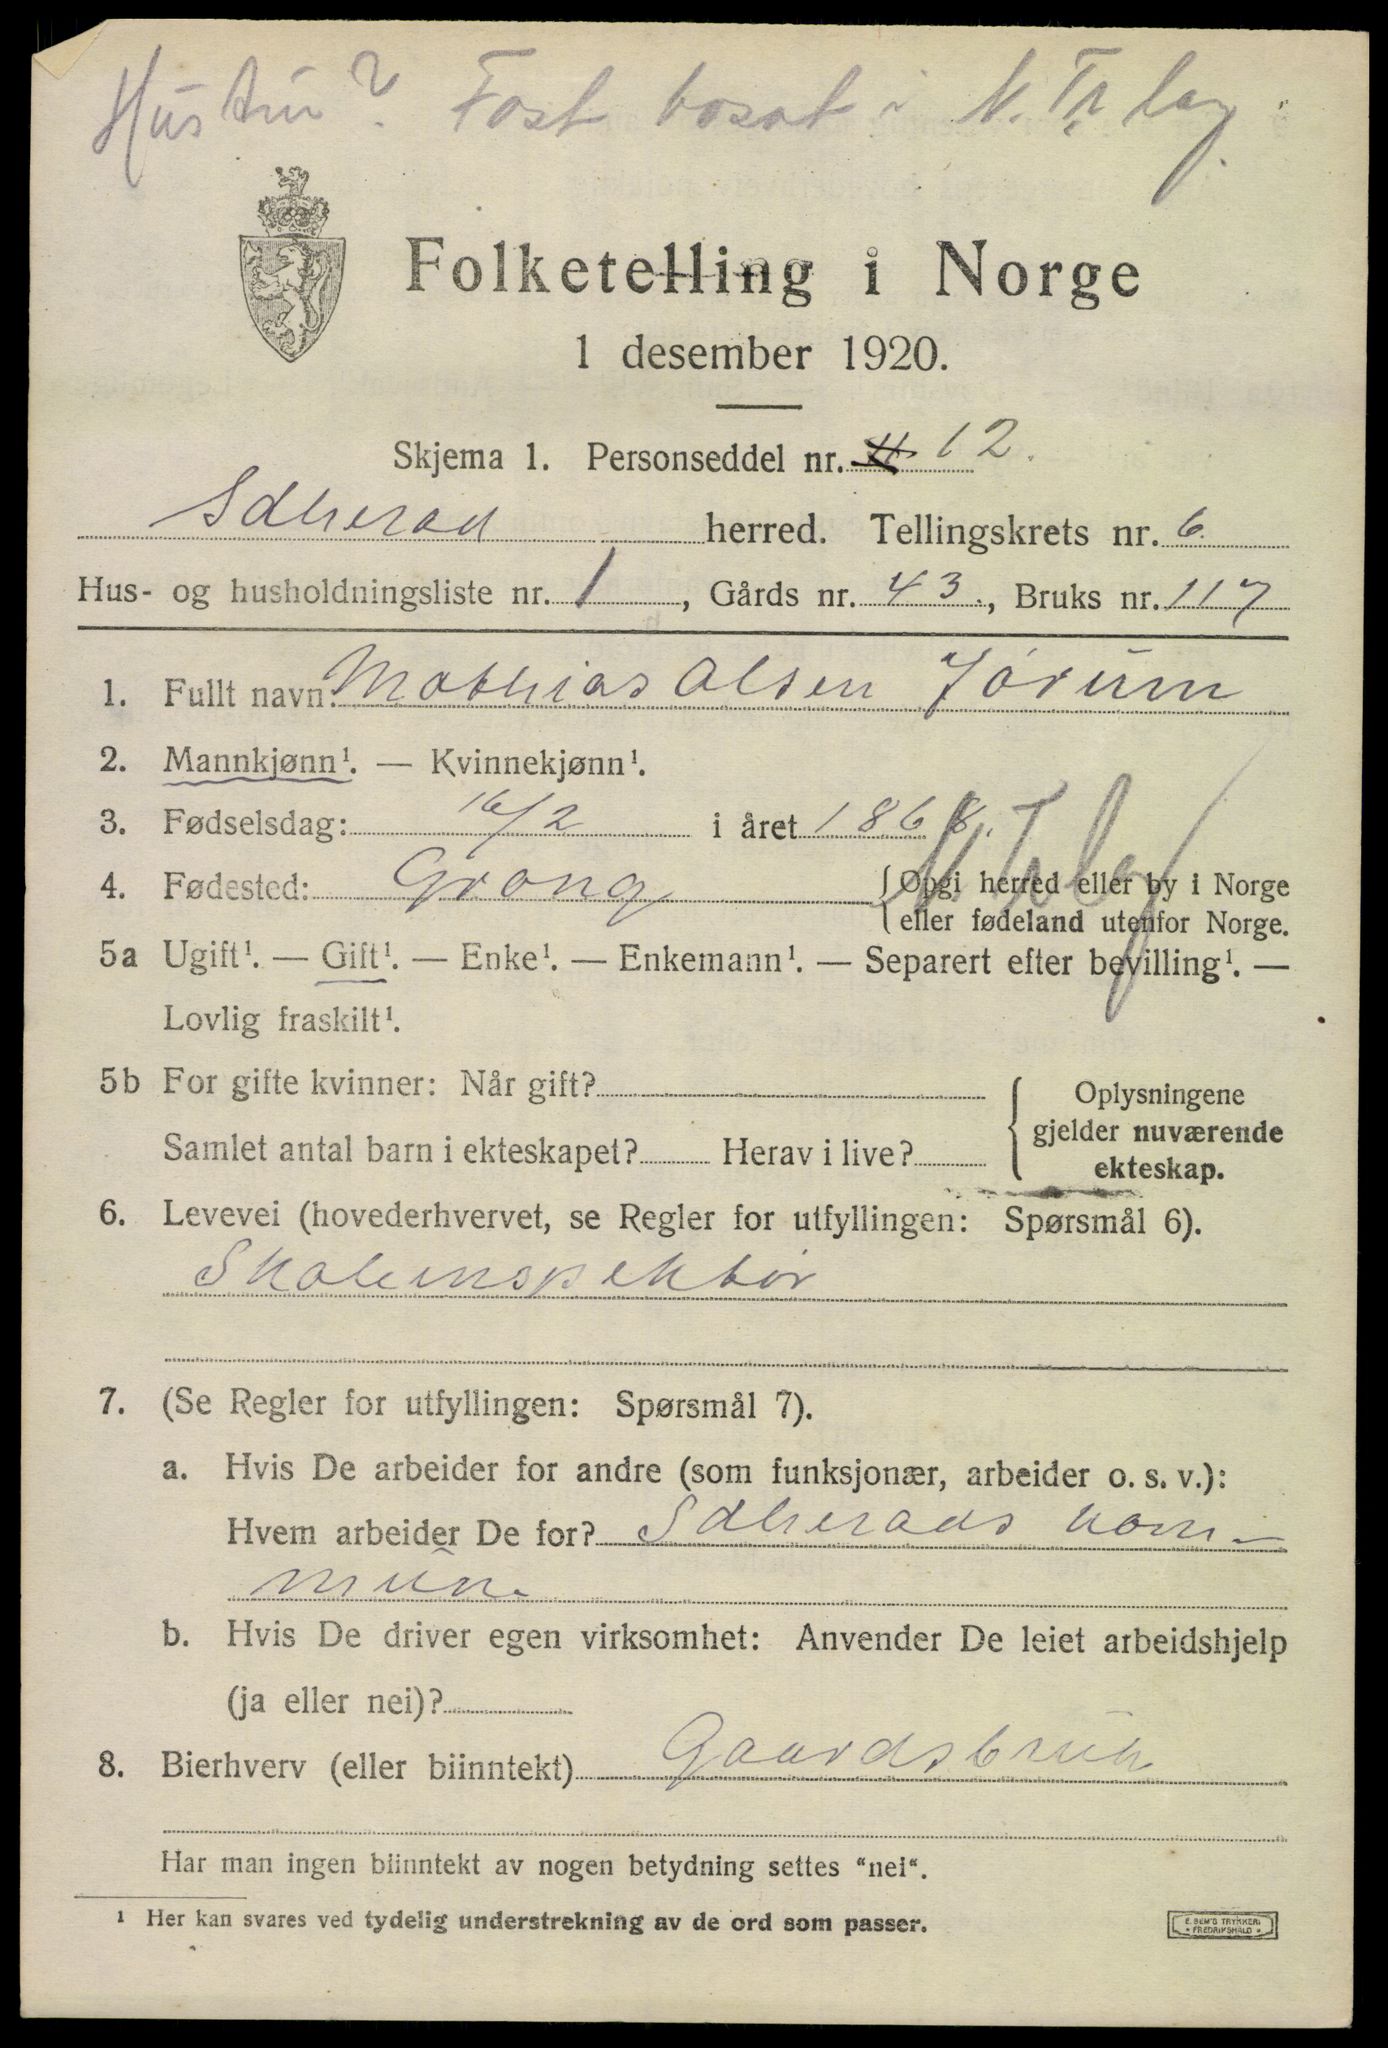 Hustru? Fast bosat i N. Tr.lag.
Folketelling i Norge
1 desember 1920.
Skjema 1. Personseddel nr. 11 12.
Sdherad herred. Tellingskrets nr. 6
Hus- og husholdningsliste nr. 1, Gårds nr. 43, Bruks nr. 117
1. Fullt navn: Mathias Olsen Jørum
2. Mannkjønn¹. — Kvinnekjønn¹.
3. Fødselsdag: 16/2 i året 1868.
4. Fødested: Grong {Opgi herred eller by i Norge
eller fødeland utenfor Norge.
N. Trlag
5a Ugift¹. — Gift¹. — Enke¹. — Enkemann¹. — Separert efter bevilling¹. —
Lovlig fraskilt¹.
5b For gifte kvinner: Når gift?
Samlet antal barn i ekteskapet? Herav i live?
Oplysningene
gjelder nuværende
ekteskap.
6. Levevei (hovederhvervet, se Regler for utfyllingen: Spørsmål 6).
Skoleinspektør
7. (Se Regler for utfyllingen: Spørsmål 7).
a. Hvis De arbeider for andre (som funksjonær, arbeider o. s. v.):
Hvem arbeider De for? Sdherads kom-
mune
b. Hvis De driver egen virksomhet: Anvender De leiet arbeidshjelp
(ja eller nei)?
8. Bierhverv (eller biinntekt) Gaardsbruk
Har man ingen biinntekt av nogen betydning settes "nei".
¹ Her kan svares ved tydelig understrekning av de ord som passer.
E. SEM'S TRYKKERI
* FREDRIKSHALD *